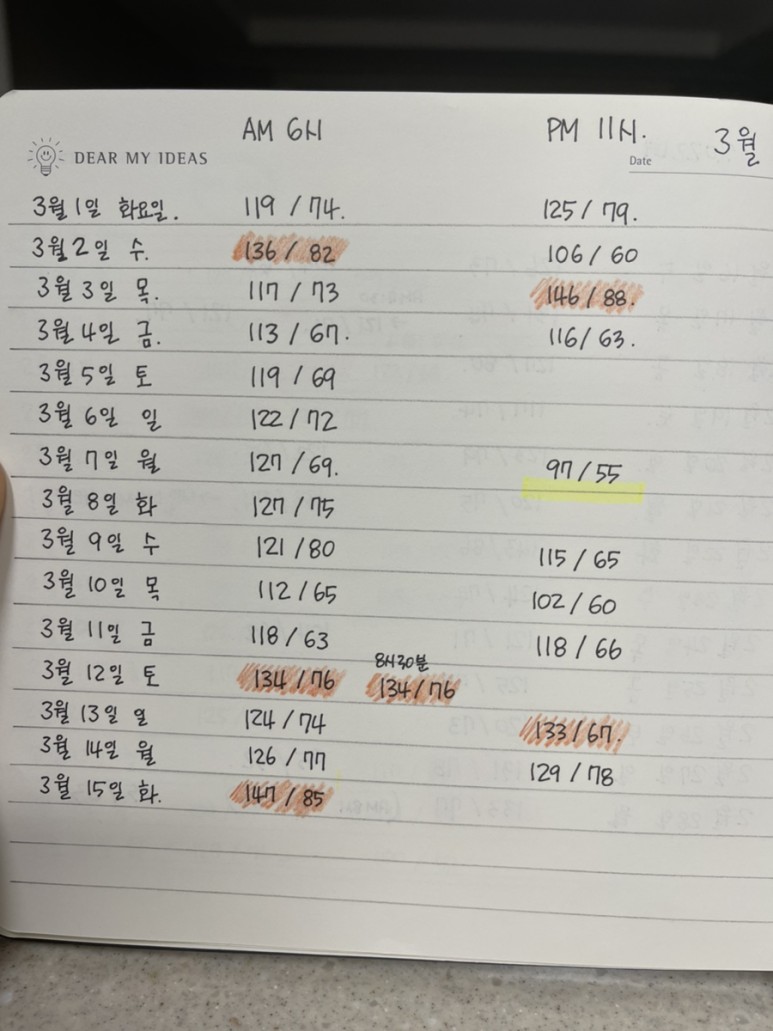 AM 6시 PM 11시. 3월
DEAR MY IDEAS Date
3월 1일 화요일. 119 / 74. 125 / 79.
3월 2일 수. 136 / 82 106 / 60
3월 3일 목. 117 / 73 146 / 88.
3월 4일 금. 113 / 67. 116 / 63.
3월 5일 토 119 / 69
3월 6일 일 122 / 72
3월 7일 월 127 / 69. 97 / 55
3월 8일 화 127 / 75
3월 9일 수 121 / 80 115 / 65
3월 10일 목 112 / 65 102 / 60
3월 11일 금 118 / 63 118 / 66
8시30분
3월 12일 토 134 / 76 134 / 76
3월 13일 일 124 / 74 133 / 67.
3월 14일 월 126 / 77 129 / 78
3월 15일 화. 147 / 85